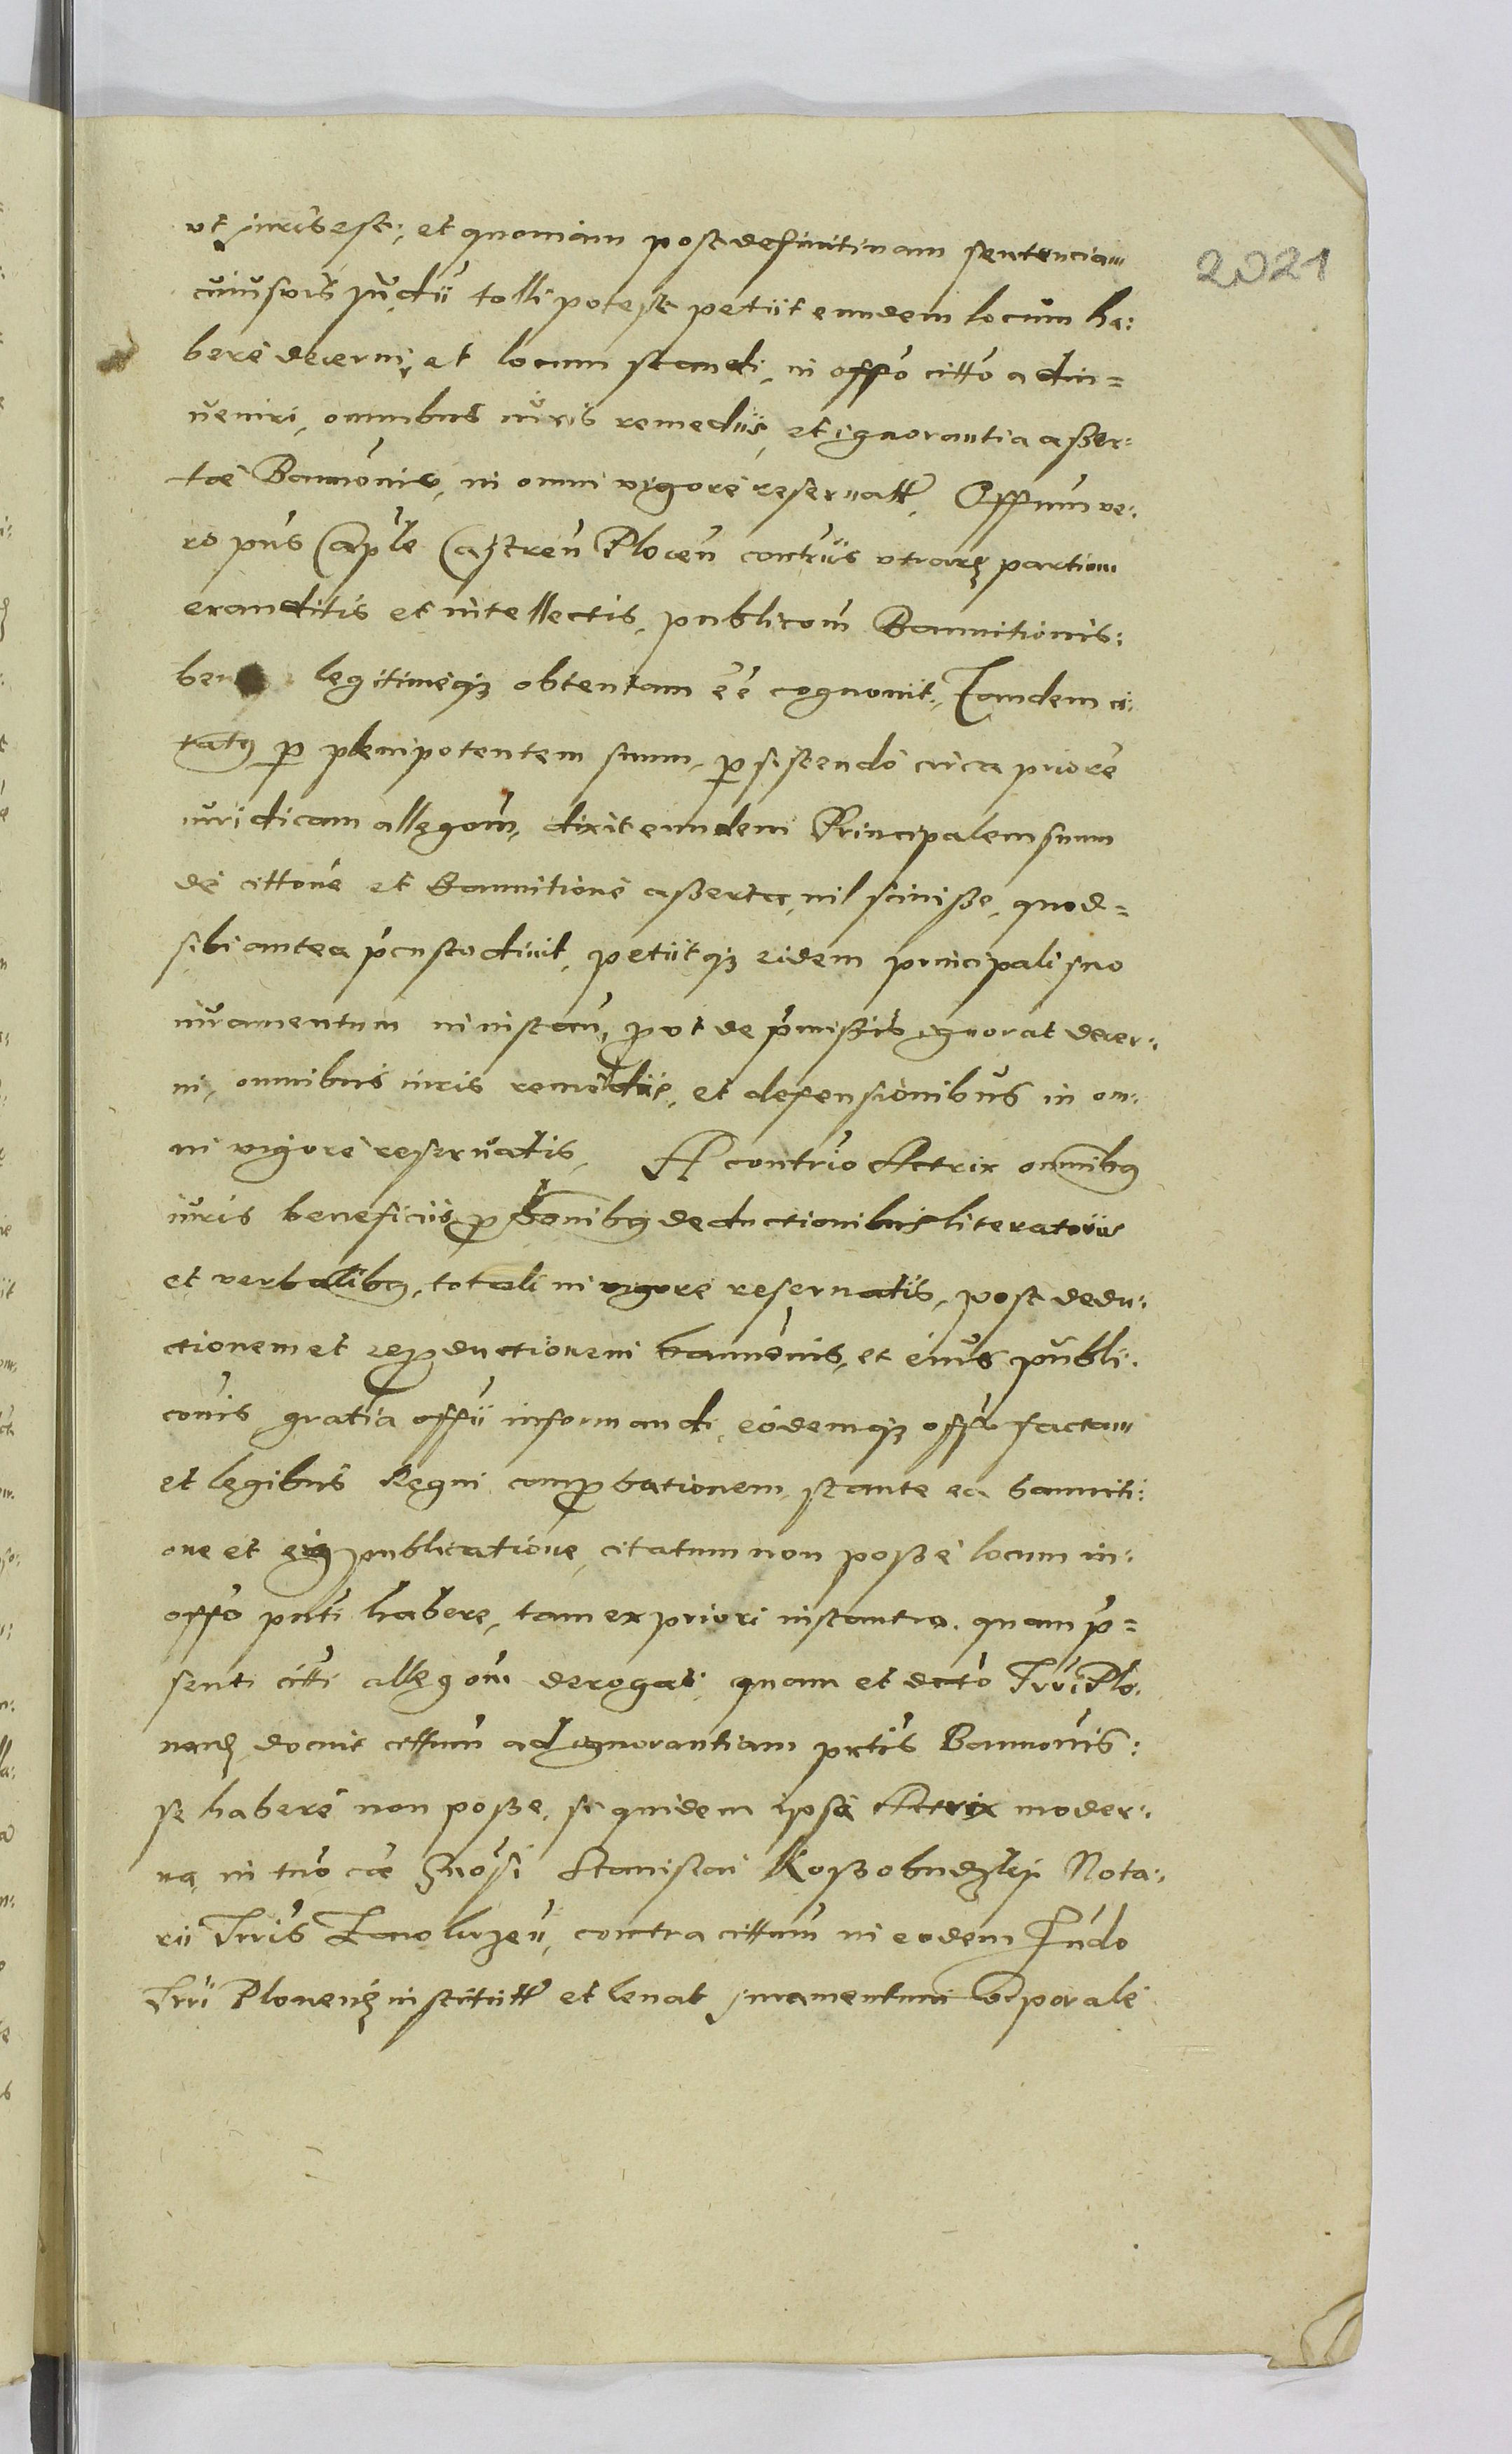 2021
ut juris est; et quoniam post definitivam sententiam
cuiusvis judii tolli potest petiit eundem locum ha:
bere decerni, et locum standi, in offo citto adin=
veniri, omnibus iuris remediis, et ignorantia asser:
tae Bannonis, in omni vigore reservatt. Offium ve:
ro pns Caple Castren Plocen contrviis utrarq partium
exauditis et intellectis, publicom Bannitionis:
bene legitimeq obtentam ee cognovit, Tandem ci:
tatq p plenipotentem suum, psistendo circa priore
iuridicam allegom, dixit eundem Principalem suum
de cittone et Bannitione asserta, nil scivisse, quod=
sibi antea pcustodivit, petiitq eidem principali suo
iuramentum in instan, put de pmissis ignorat decer:
ni, omnibus iuris remediis, et defensionibus in om:
ni vigore reservatis. A contrio Actrix omnibq
iuris beneficiis pbonibq deductionibus literatoriis
et verbalibq, totali in vigore reservatis, post dedu:
ctionem et reproductionem bannonis, et eius publi:
conis gratia offii informandi, eodemq offo factam
et legibus Regni comprobationem, stante ea banniti:
one et eiq publicatione, citatum non posse locum in:
offo pnti habere, tam ex priori instantia, quam p=
senti citti allegom derogat, quam et dicto Trri Plo:
nen, docuit cittum ad ignorantiam prtis Bannonis:
se habere non posse, si quidem ipsa Actrix moder:
na, in tno cae Gnosi Stanislai Kossobudzky Nota:
rii Trris Zawskrzen, contra cittum in eodem Judo
Trri Plonen instituitt et levat juramentum corporale